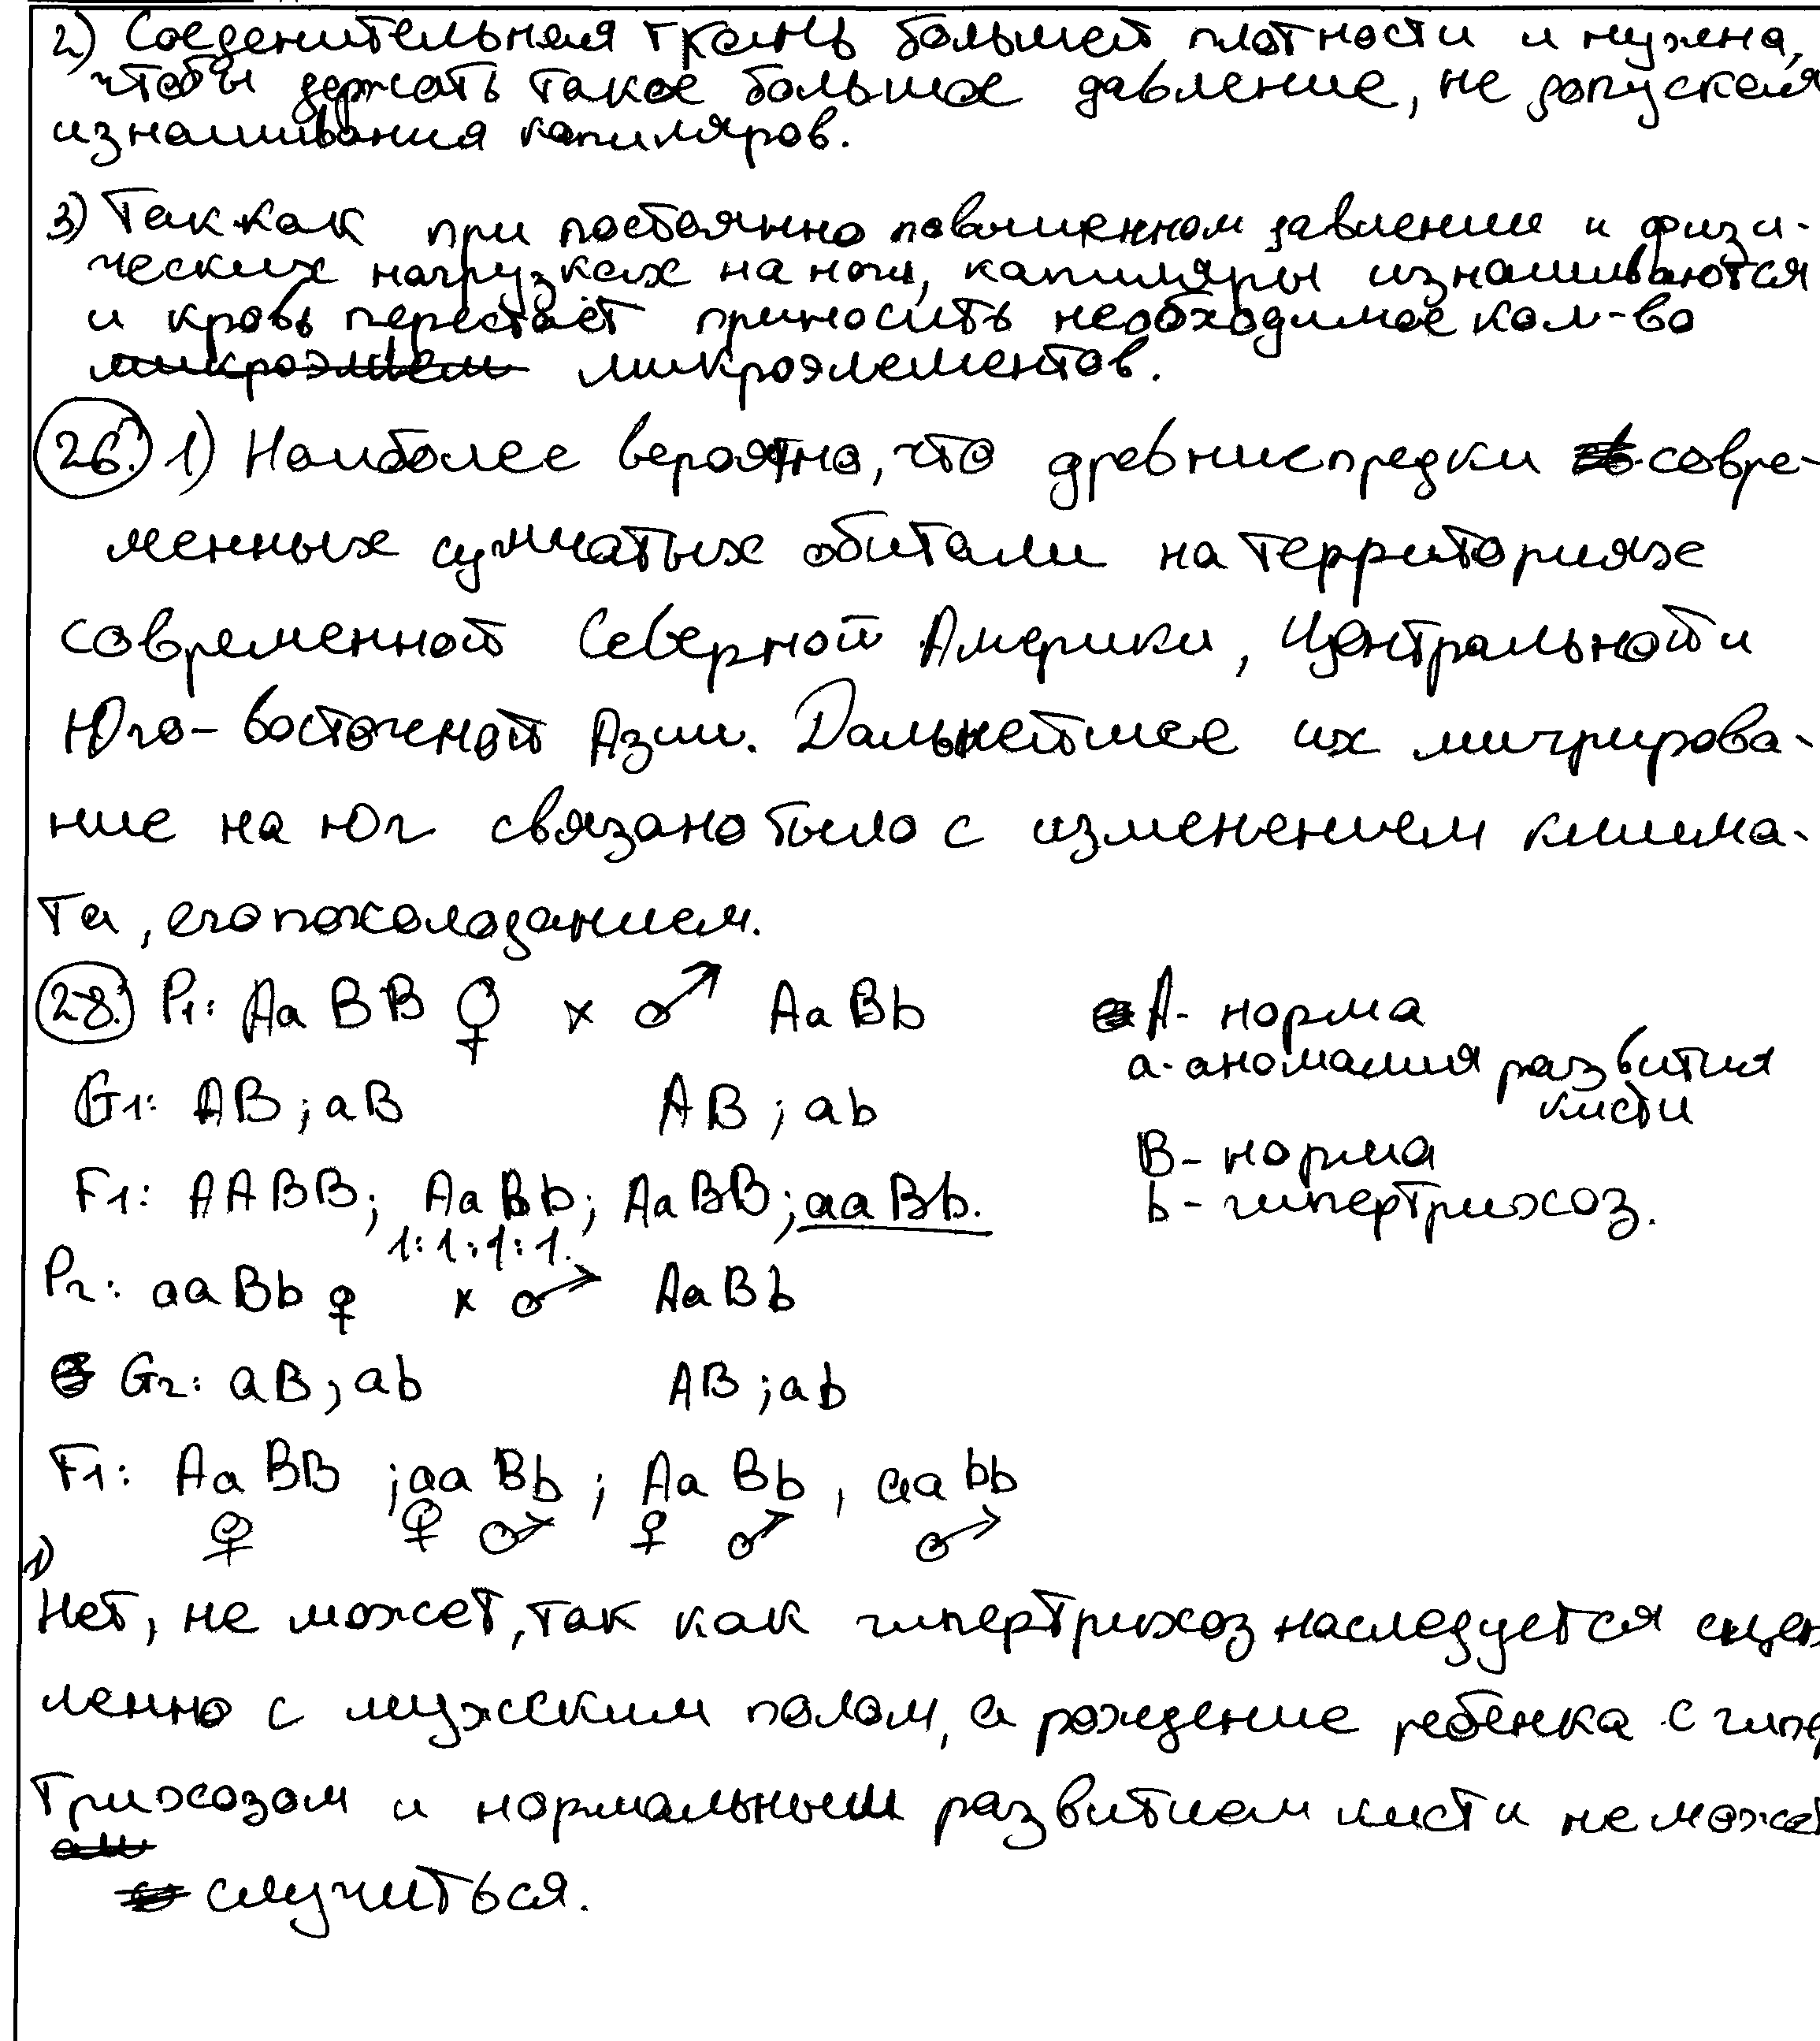 2) Соеденительная ткань большей плотности и нужна,
чтобы держать такое большое давление, не допуская
изнашивания капиляров.
3) Так как при постоянно повышенном давлении и физи-
ческих нагрузках на ноги, капиляры изнашиваются
и кровь перестаёт приносить необходимое кол-во
микроэлементов.
26. 1) Наиболее вероятно, что древние предки совре-
менных сумчатых обитали на территориях
современной Северной Америки, Центральной и
Юго-Восточной Азии. Дальнейшее их мигрирова-
ние на юг связано было с изменением клима-
та, его похолоданием.
28. P1: Aa BB ♀ × ♂ Aa Bb A - норма
a - аномалия развития
кисти
G1: AB ; aB AB ; ab
B - норма
F1: AABB; AaBb; AaBB; aaBb. b - гипертрихоз.
1:1:1:1.
P2: aaBb ♀ × ♂ AaBb
G2: aB; ab AB ; ab
F1: Aa BB ; aa Bb ; Aa Bb , aa bb
♀ ♀ ♂ ♀ ♂ ♂
1)
Нет, не может, так как гипертрихоз наследуется сцеп
ленно с мужским полом, а рождение ребёнка с гипер
трихозом и нормальным развитием кисти не может
случиться.